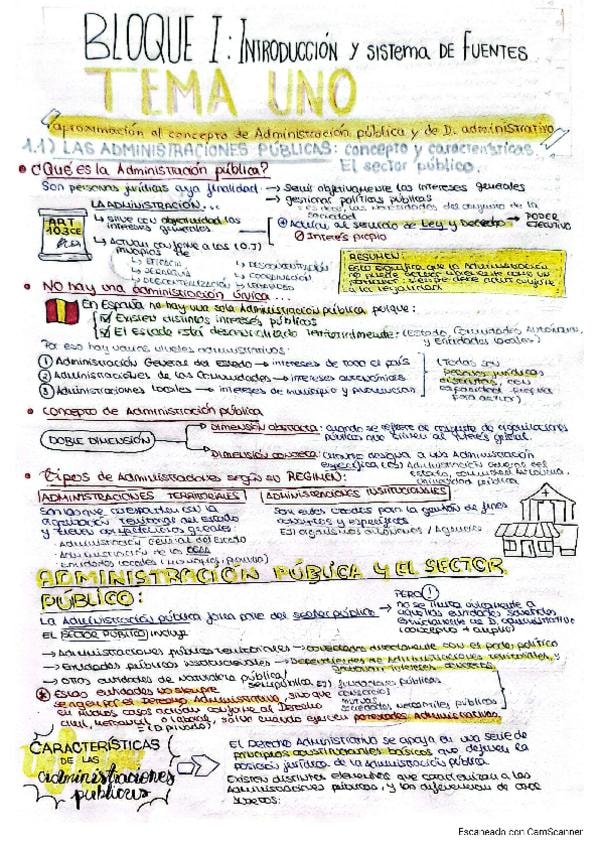 BLOQUE I: INTRODUCCIÓN Y SISTEMA DE FUENTES
TEMA UNO
aproximación al concepto de Administración pública y de D. administrativo
1.1) LAS ADMINISTRACIONES PÚBLICAS: concepto y características.
El sector público.
¿Qué es la Administración pública?
Son personas jurídicas cuya finalidad: → Servir objetivamente los intereses generales
→ gestionar políticas públicas
es decir, las necesidades del conjunto de la sociedad
LA ADMINISTRACIÓN...
ART 103 CE
↳ sirve con objetividad los intereses generales
Actúan al servicio de Ley y Derecho → PODER EJECUTIVO
Interés propio
↳ Actúan conforme a los
principios de
EFICACIA
JERARQUÍA
DESCENTRALIZACIÓN
DESCONCENTRACIÓN
COORDINACIÓN
RESUMEN:
Esto significa que la Administración
no puede actuar libremente como un
particular: siempre debe actuar conforme
a la legalidad
NO hay una administración única...
En España no hay una sola Administración pública porque:
Existen distintos intereses públicos
El Estado está descentralizado territorialmente: (Estado, Comunidades Autónomas, y entidades locales)
Por eso hay varios niveles administrativos:
① Administración General del Estado → intereses de todo el país
② Administraciones de las Comunidades → intereses autonómicos
③ Administraciones locales → intereses de municipio y provincias
(Todas son
personas jurídicas
distintas, con
capacidad propia
para actuar)
Concepto de Administración pública
DOBLE DIMENSIÓN
DIMENSIÓN ABSTRACTA: cuando se refiere al conjunto de organizaciones
públicas que sirven al interés general.
DIMENSIÓN CONCRETA: cuando designa a una Administración
específica (ej) Administración General del
Estado, comunidad autónoma,
Universidad pública.
Tipos de Administraciones según su REGIMEN:
ADMINISTRACIONES TERRITORIALES
ADMINISTRACIONES INSTITUCIONALES
Son las que corresponden con la
organización territorial del Estado
y tienen competencias generales
· Administración General del Estado
· Administración de las CCAA
· Entidades locales (municipios, provincias)
Son entes creados para la gestión de fines
concretos y específicos
Ej) organismos autónomos / Agencias
ADMINISTRACIÓN PÚBLICA Y EL SECTOR
PÚBLICO:
La Administración pública forma parte del sector público
PERO!
no se limita únicamente a
EL SECTOR PÚBLICO incluye
→ Administraciones públicas territoriales → conectadas directamente con el poder político
→ Entidades públicas institucionales → Dependientes de Administraciones territoriales, y
gestionan intereses concretos
→ otras entidades de naturaleza pública/
semipública. Ej)
fundaciones públicas
consorcios
mutuas
sociedades mercantiles públicas
Estas entidades no siempre
se rigen por el Derecho Administrativo, sino que
en muchos casos actúan conforme al Derecho
civil, mercantil o laboral, salvo cuando ejercen potestades Administrativas
(D. privado)
CARACTERÍSTICAS
DE LAS
administraciones
públicas
El Derecho Administrativo se apoya en una serie de
principios constitucionales básicos que definen la
posición jurídica de la Administración pública.
Existen distintos elementos que caracterizan a las
Administraciones públicas, y las diferencian de otros
sujetos:
Escaneado con CamScanner